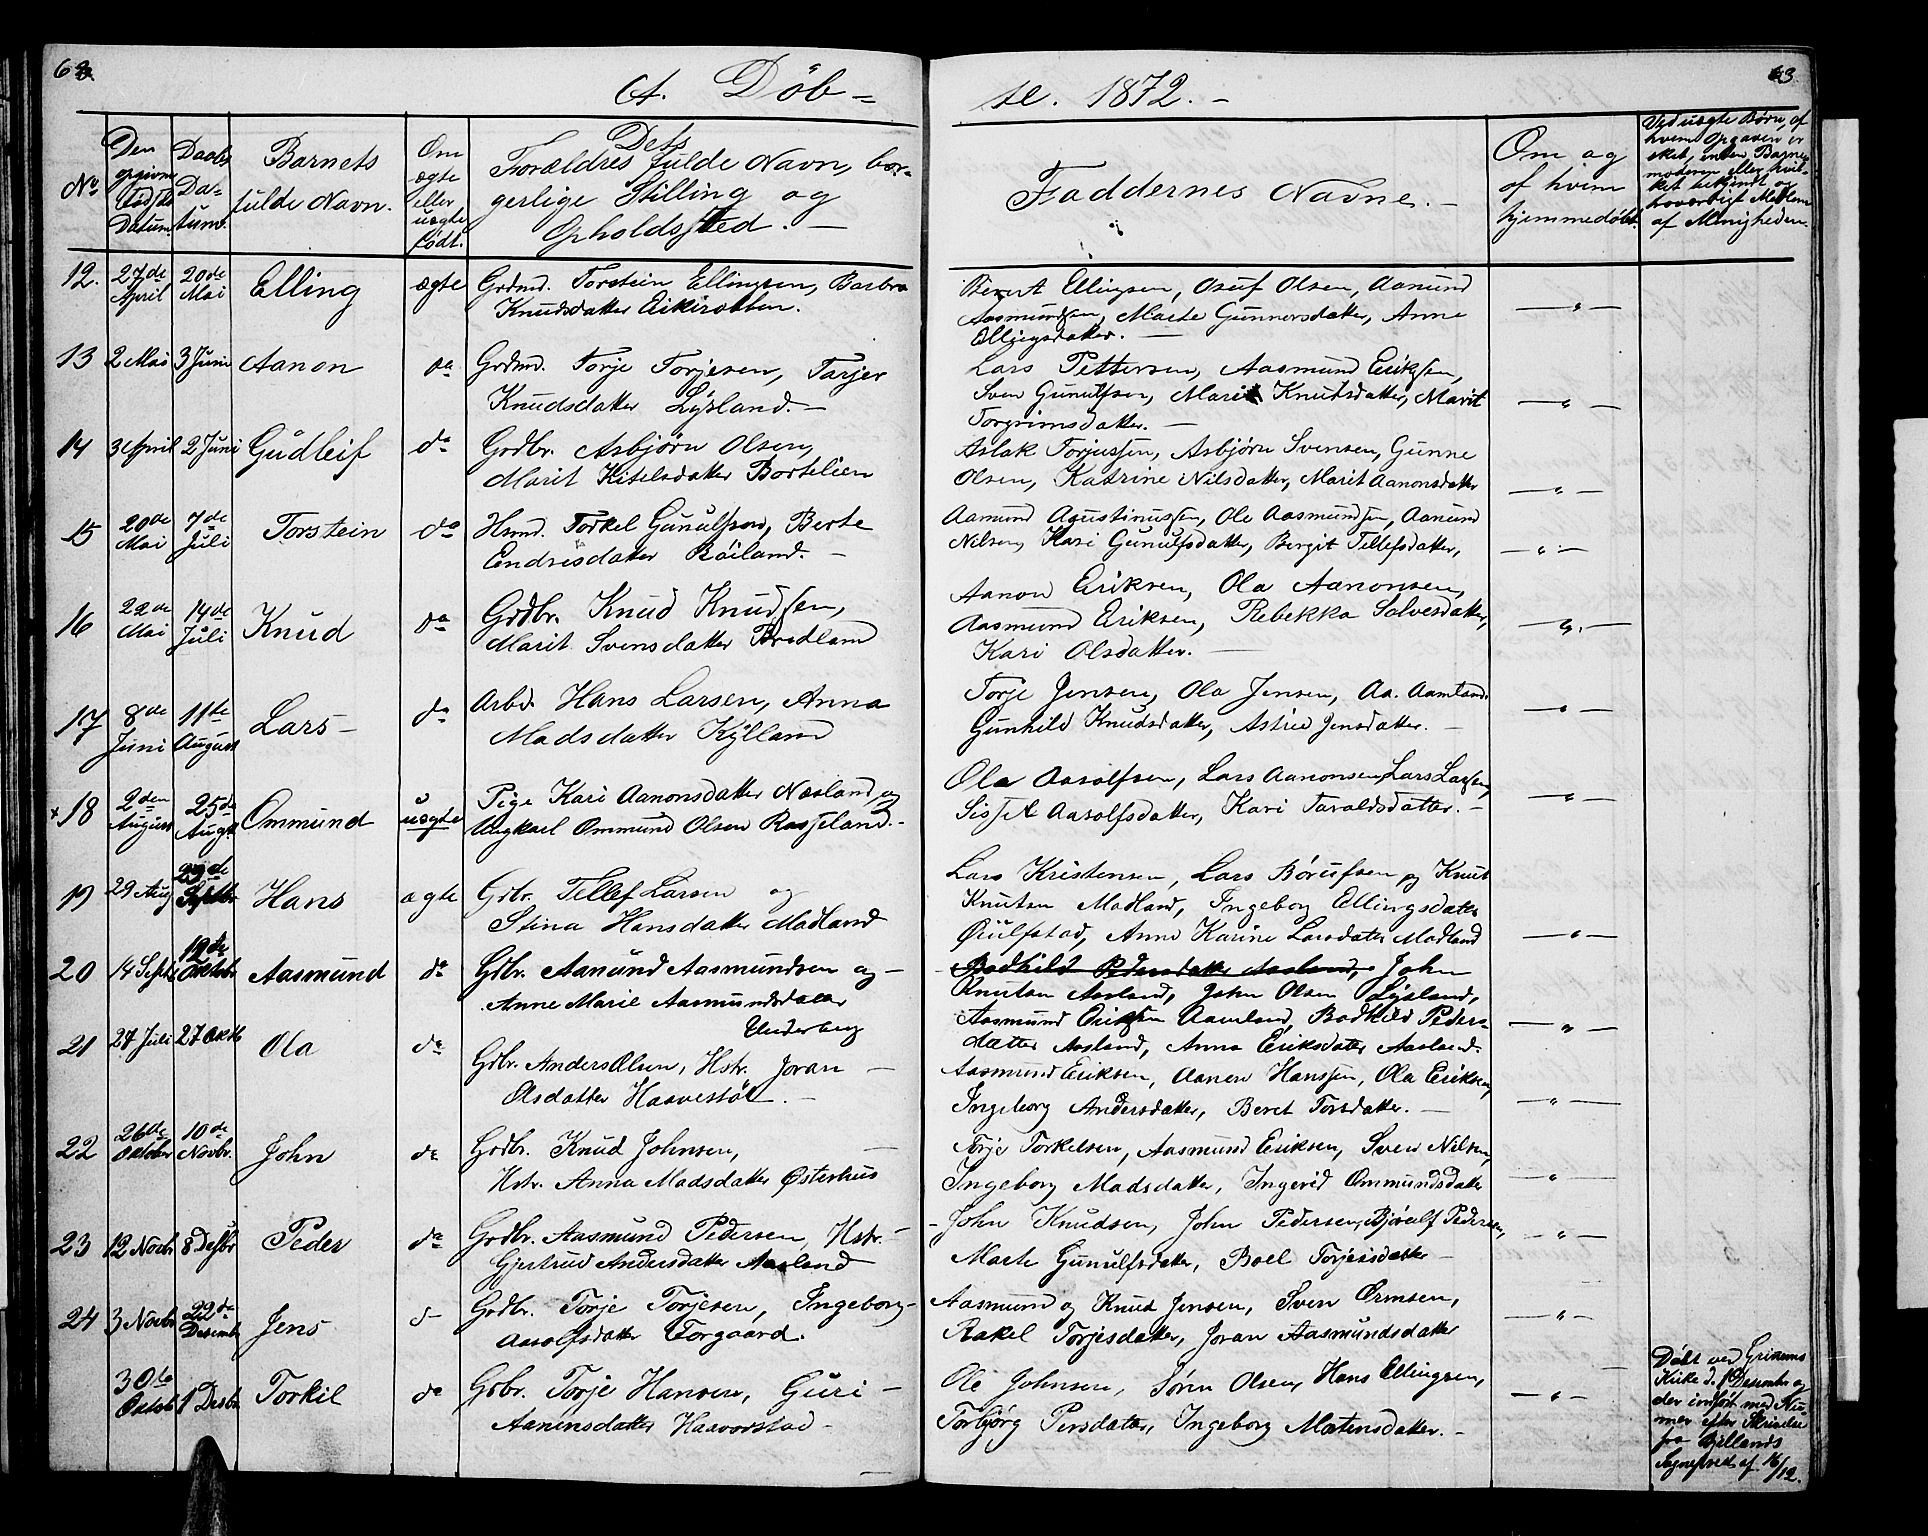 63.
A. Döb-
se. 1872. -
No
Den opgivne Fødsels Datum.
Daabs Da-tum.
Barnets fulde Navn.
Om ægte eller uægte født.
Dets Forældres fulde Navn, bor-gerlige Stilling og Opholdssted. -
Faddernes Navne. -
Om og af hvem hjemmedøbt.
Ved uægte Børn, af hvem Opgaven er sket, enten Barne-moderen eller hvil-ket bekjendt og hæderligt Medlem af Menigheden.
12. 27de April 20de Mai Elling ægte Grdmd. Torstein Ellingsen, Barbro
Knudsdatter Eikerotten.
Berent Ellingsen, Osuf Olsen, Aanund
Aasmundsen, Marte Gunnersdatter, Anne
Ellingsdatter. - — " —
13 2 Mai 3 Juni Aanon do Grdmd. Torje Torjesen, Tarjer
Knudsdatter Lysland. -
Lars Pettersen, Aasmund Eriksen,
Sven Gunulfsen, Marit Knutsdatter, Marit
Torgrimsdatter. - — " —
14 3 April 2 Juni Gudleif do Grdbr. Asbjørn Olsen,
Marit Kitelsdatter Bortelien
Aslak Torjussen, Asbjørn Svensen, Gunne
Olsen, Katrine Nilsdatter, Marit Aanonsdatter — " —
15 20de Mai 7de Juli Torstein do Hsmd. Torkel Gunulfsen, Berte
Endresdatter Röiland. -
Aamund Agustinussen, Ole Aasmundsen, Aanund
Nilsen, Kari Gunulfsdatter, Bergit Tellefsdatter, — " —
16 22de Mai 14de Juli Knud do Grdbr. Knud Knudsen,
Marit Svensdatter Bredland
Aanon Eriksen, Ola Aanonsen,
Aasmund Eriksen, Rebekka Salvesdatter,
Kari Olsdatter. - — " —
17 8de Juni 11te August Lars - do Arbd. Hans Larsen, Anna
Madsdatter Kylland
Torje Jensen, Ola Jensen, Aa. Aamland.
Gunhild Knudsdatter, Astrid Jensdatter. - — " —
+18 2den August 25de Augs. Ommund uægte Pige Kari Aanonsdatter Næsland, og
Ungkarl Ommund Olsen Rosseland. -
Ola Aasolfsen, Lars Aanonsen, Lars Larsen,
Sisset Aasolfsdatter, Kari Taraldsdatter. - — " —
19 29 Aug 29de Septbr. Hans ægte Grbr. Tellef Larsen og
Stina Hansdatter Madland
Lars Kristensen, Lars Börufsen og Knut
Knutsen Madland, Ingeborg Ellingsdatter
Quilfstad, Anne Karine Larsdatter Madland — " —
20 14 Septbr 19de Oktobr Aasmund do Gdbr. Aanund Aasmundsen og -
Anne Marie Aasmundsdatter
Underberg
Bodhild Pedersdatter Aasland, John
Knutsen Aasland, John Olsen Lysland,
Aasmund Eriksen Aamland, Bodhild Peders-
datter Aasland, Anna Eriksdatter Aasland. — " —
21 27 Juli 27 Oktb Ola do Grbr. Anders Olsen, Hstr. Joran -
Olsdatter Haavestöl. -
Aasmund Eriksen, Aanen Hanssen, Ola Eriksen,
Ingeborg Andersdatter, Beret Torsdatter. - — " —
22 26de Oktober 10de Novbr. John do Grdbr. Knud Johnsen, -
Hstr. Anna Madsdatter Østerhus
Torje Torkelsen, Aasmund Eriksen, Sven Nilsen,
Ingeborg Madsdatter, Ingerid Ommundsdatter — " —
23 12 Novbr 8 Desbr Peder do Grdbr. Aasmund Pedersen, Hstr. -
Gjertrud Andersdatter Aasland
- John Knudsen, John Pedersen, Björulf Pedersen,
Marte Gunulfsdatter, Boel Torjesdatter - " -
24 3 Novbr 22de Desemb Jens d- Grdbr. Torje Torjesen, Ingeborg -
Aasolfsdatter Torgaard.
Aasmund og Knud Jensen, Sven Ormsen,
Rakel Torjesdatter, Joran Aasmundsdatter — " —
30te Oktob 1 Desbr Torkil do Grbr. Torje Hansen, Guri -
Aaninsdatter Haavorstad -
Ole Johnsen, Sören Olsen, Hans Ellingsen,
Torbjörg Persdatter, Ingeborg Mortensdatter. - — " —
Döbt ved Grinums
Kirke d. 1 Desember og
der indfört med Nu-
mer efter Skrivelse
fra Bjellands
Sognepræst af 16/12.